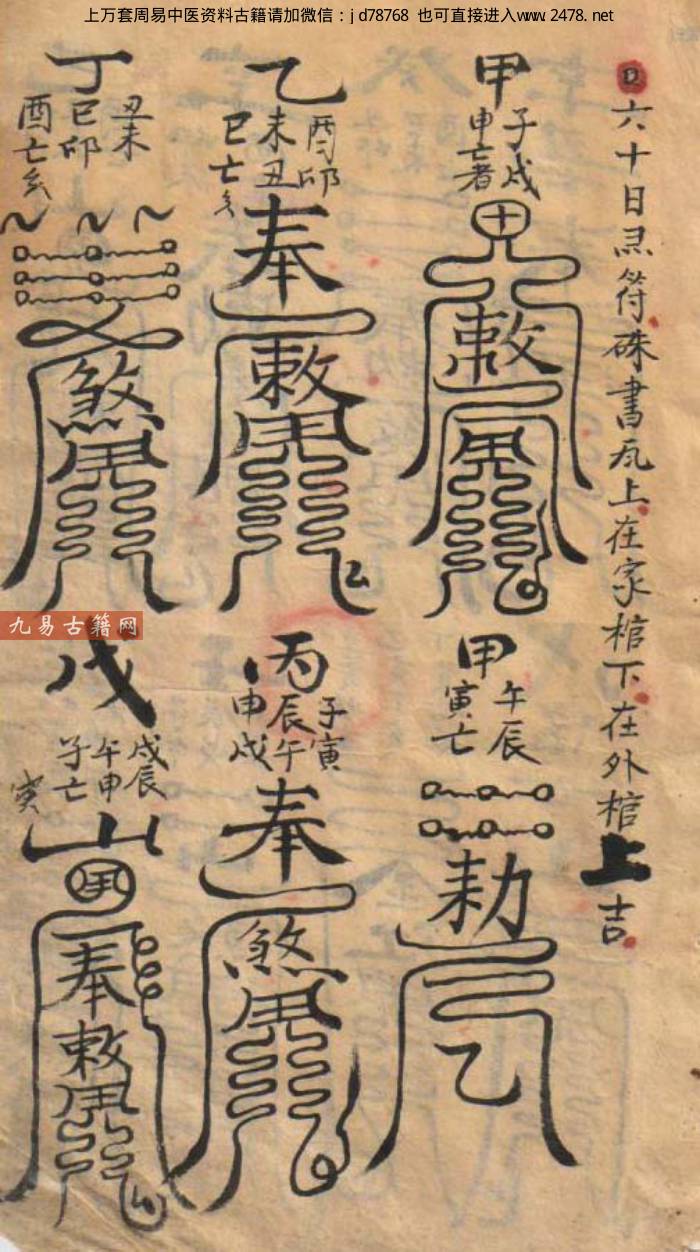 上万套周易中医资料古籍请加微信：jd78768 也可直接进入www.2478.net
六十日杰符硃書瓦上在家棺下在外棺上吉
甲
子戌
申亡者
敕
乙
酉卯
未丑
巳亡
奉
敕
丁
丑未
巳卯
酉亡
煞
甲
午辰
寅亡
勅
乙
丙
子寅
辰午
申戌
奉
煞
戊
戌辰
午申
子亡
寅
山
奉
敕
九易古籍网